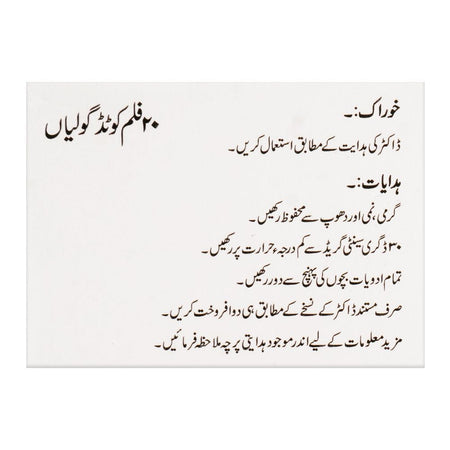 خوراک:۔
۲۰ فلم کوٹڈ گولیاں
ڈاکٹر کی ہدایت کے مطابق استعمال کریں۔
ہدایات:۔
گرمی، نمی اور دھوپ سے محفوظ رکھیں۔
۳۰ ڈگری سینٹی گریڈ سے کم درجہء حرارت پر رکھیں۔
تمام ادویات بچوں کی پہنچ سے دور رکھیں۔
صرف مستند ڈاکٹر کے نسخے کے مطابق ہی دوا فروخت کریں۔
مزید معلومات کے لیے اندر موجود ہدایتی پرچہ ملاحظہ فرمائیں۔